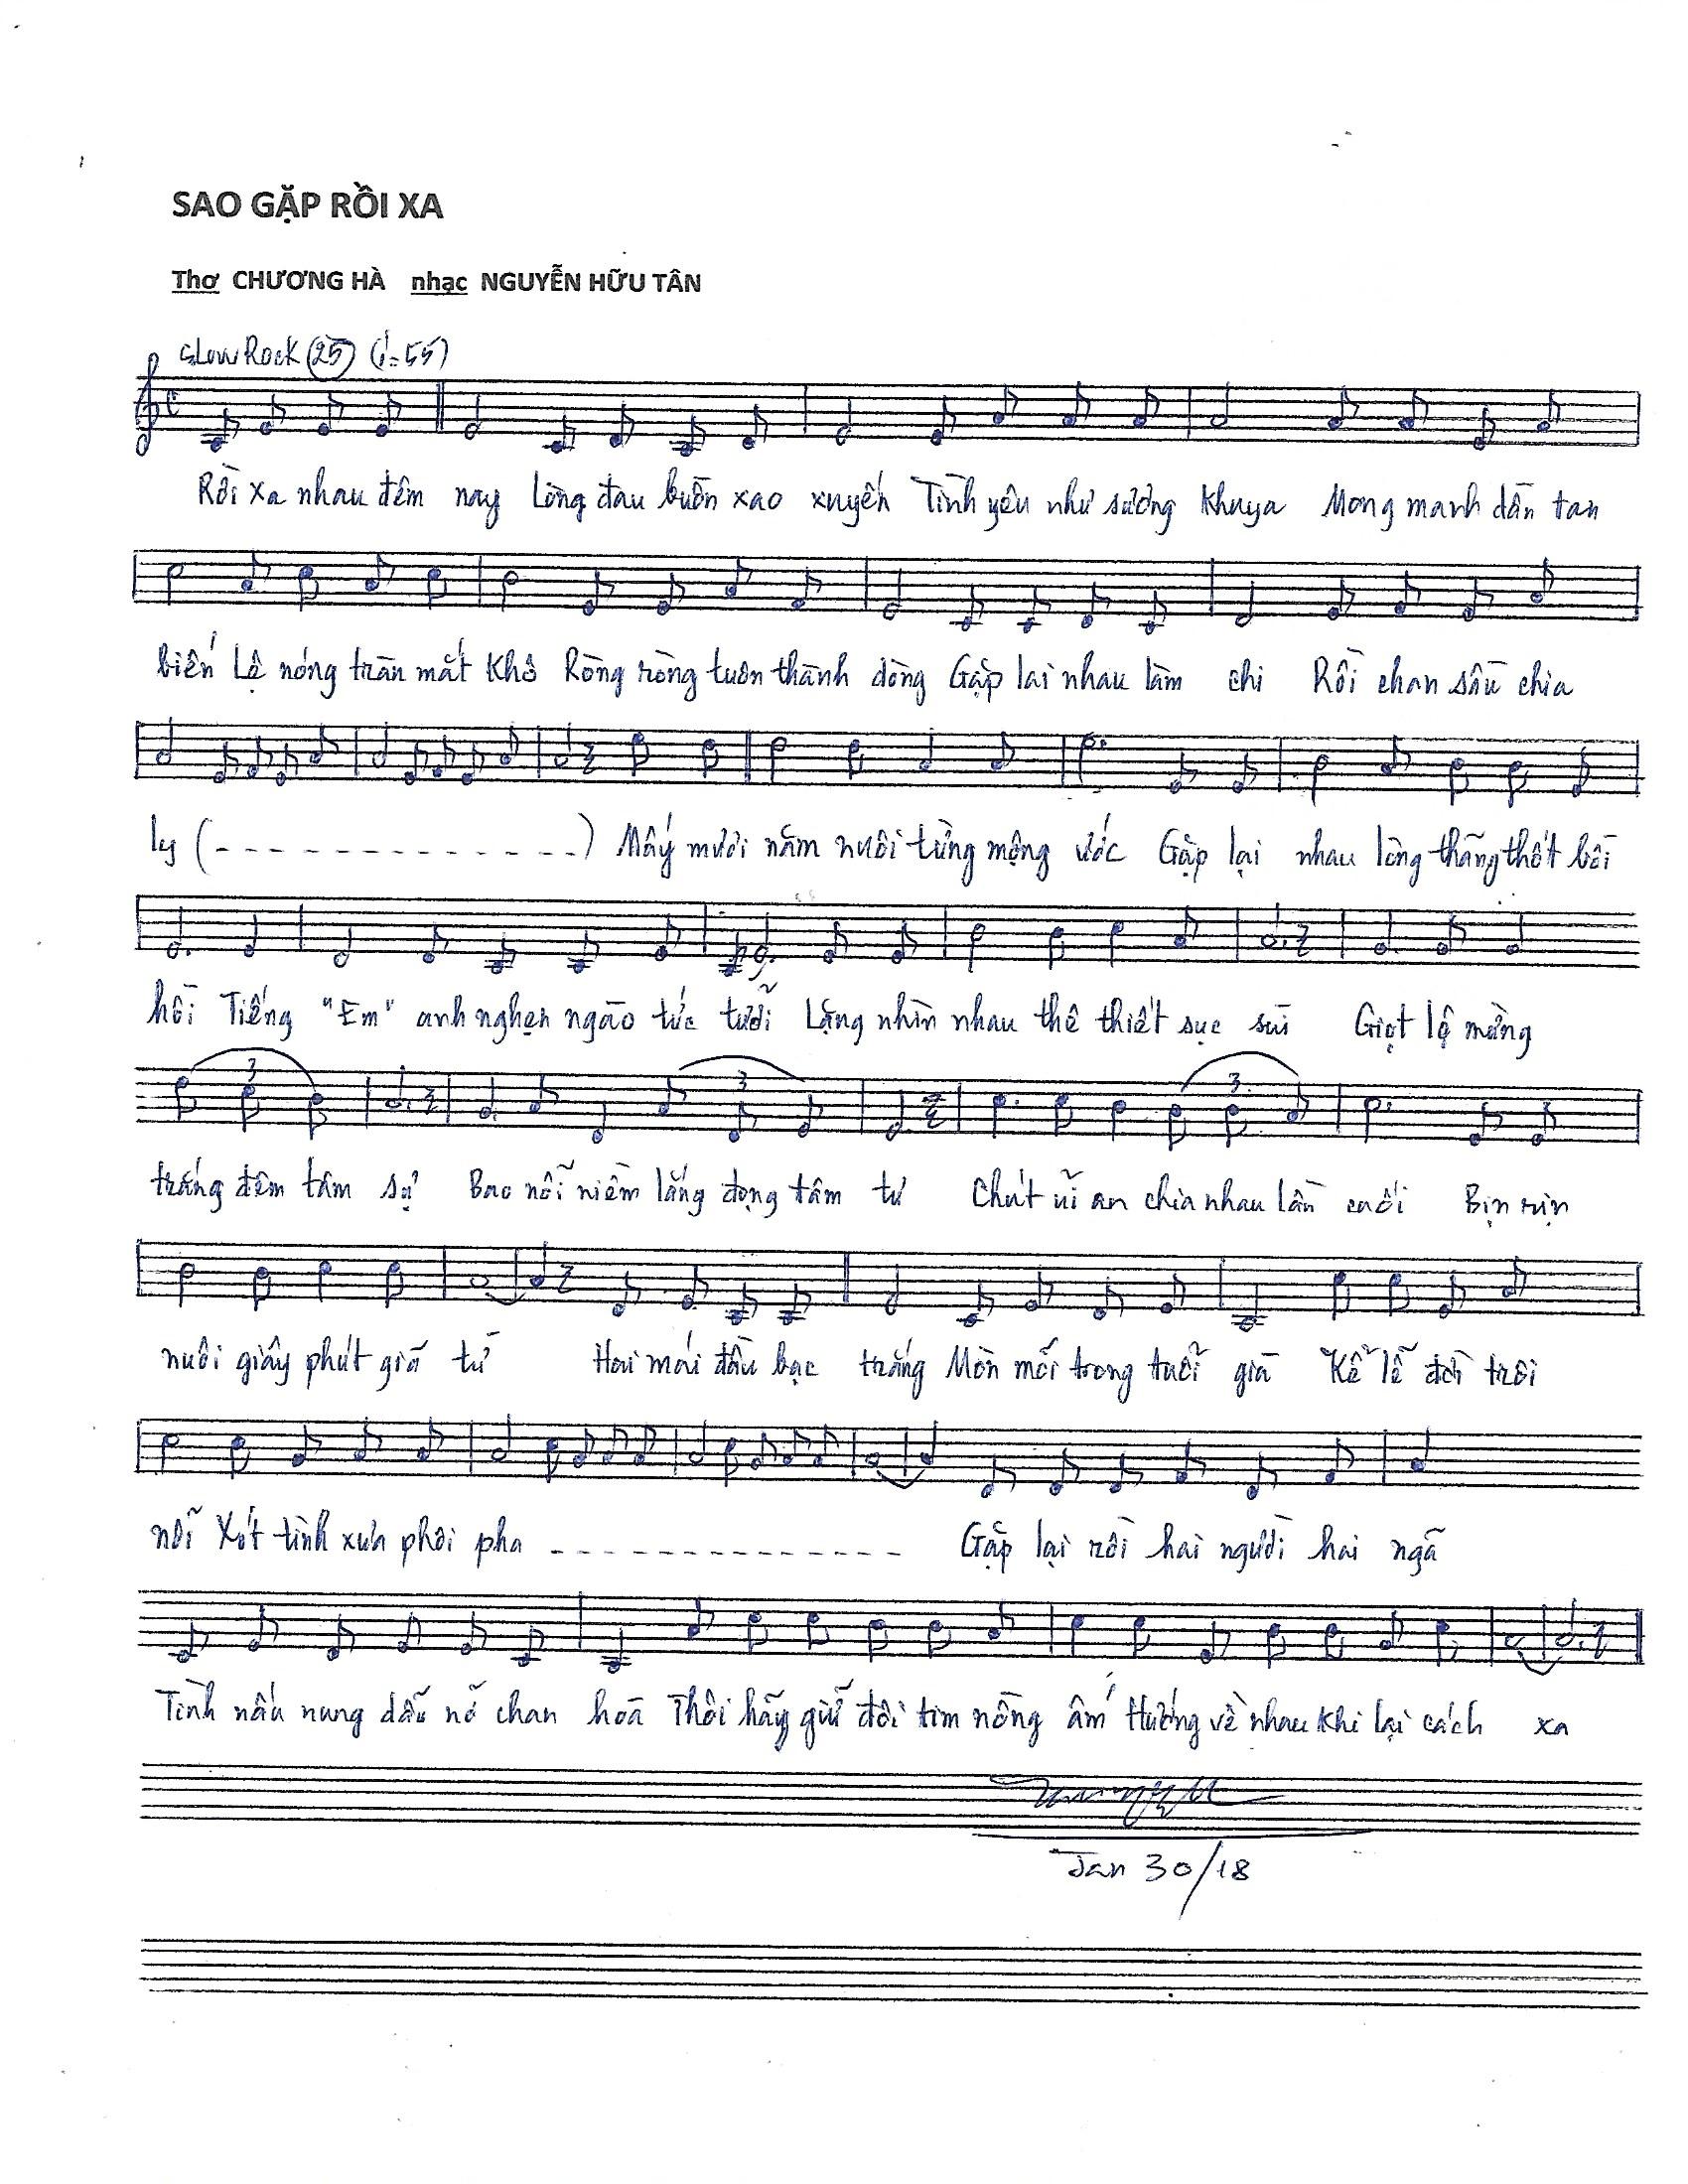 SAO GẶP RỒI XA
Thơ CHƯƠNG HÀ nhạc NGUYỄN HỮU TÂN
Slow Rock (25) (♩=55)
Rồi xa nhau đêm nay Lòng đau buồn xao xuyến Tình yêu như sương khuya Mong manh dần tan
biến Lệ nóng tràn mắt khô Ròng ròng tuôn thành dòng Gặp lại nhau làm chi Rồi chan sầu chia
ly (- - - - - - - - - - - - -) Mấy mươi năm nuôi từng mộng ước Gặp lại nhau lòng thảng thốt bồi
hồi Tiếng "Em" anh nghẹn ngào tức tưởi Lặng nhìn nhau thê thiết sục sùi Giọt lệ mừng
3 3 3.
trắng đêm tâm sự Bao nỗi niềm lắng đọng tâm tư Chút ủi an chia nhau lần cuối Bịn rịn
nuôi giây phút giã từ Hai mái đầu bạc trắng Mòn mỏi trong tuổi già Kể lể đời trôi
nổi Xót tình xưa phôi pha - - - - - - - - - - - - - - Gặp lại rồi hai người hai ngã
Tình nấu nung dẫu nở chan hòa Thôi hãy giữ đôi tim nồng ấm Hướng về nhau khi lại cách xa
Jan 30/18